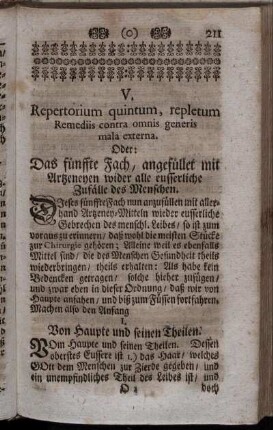 (o) 211
V.
Repertorium quintum, repletum
Remediis contra omnis generis
mala externa.
Oder:
Das fünffte Fach, angefüllet mit
Artzeneyen wider alle eusserliche
Zufälle des Menschen.
DIeses fünffte Fach nun anzufüllen mit aller-
hand Artzney-Mitteln wieder eusserliche
Gebrechen des menschl. Leibes/ so ist zum
voraus zu erinnern/ daß wohl die meisten Stücke
zur Chirurgie gehören; Alleine weil es ebenfalls
Mittel sind/ die des Menschen Gesundheit theils
wiederbringen/ theils erhalten: Als habe kein
Bedencken getragen/ solche hieher zufügen/
und zwar eben in dieser Ordnung/ daß wir von
Haupte anfahen/ und bis zum Füssen fortfahren.
Machen also den Anfang
Von Haupte und seinen Theilen.
VOm Haupte und seinen Theilen. Dessen
oberstes Eussere ist 1.) das Haar/ welches
GOtt dem Menschen zur Zierde gegeben/ und
ein unempfindliches Theil des Leibes ist/ und
doch